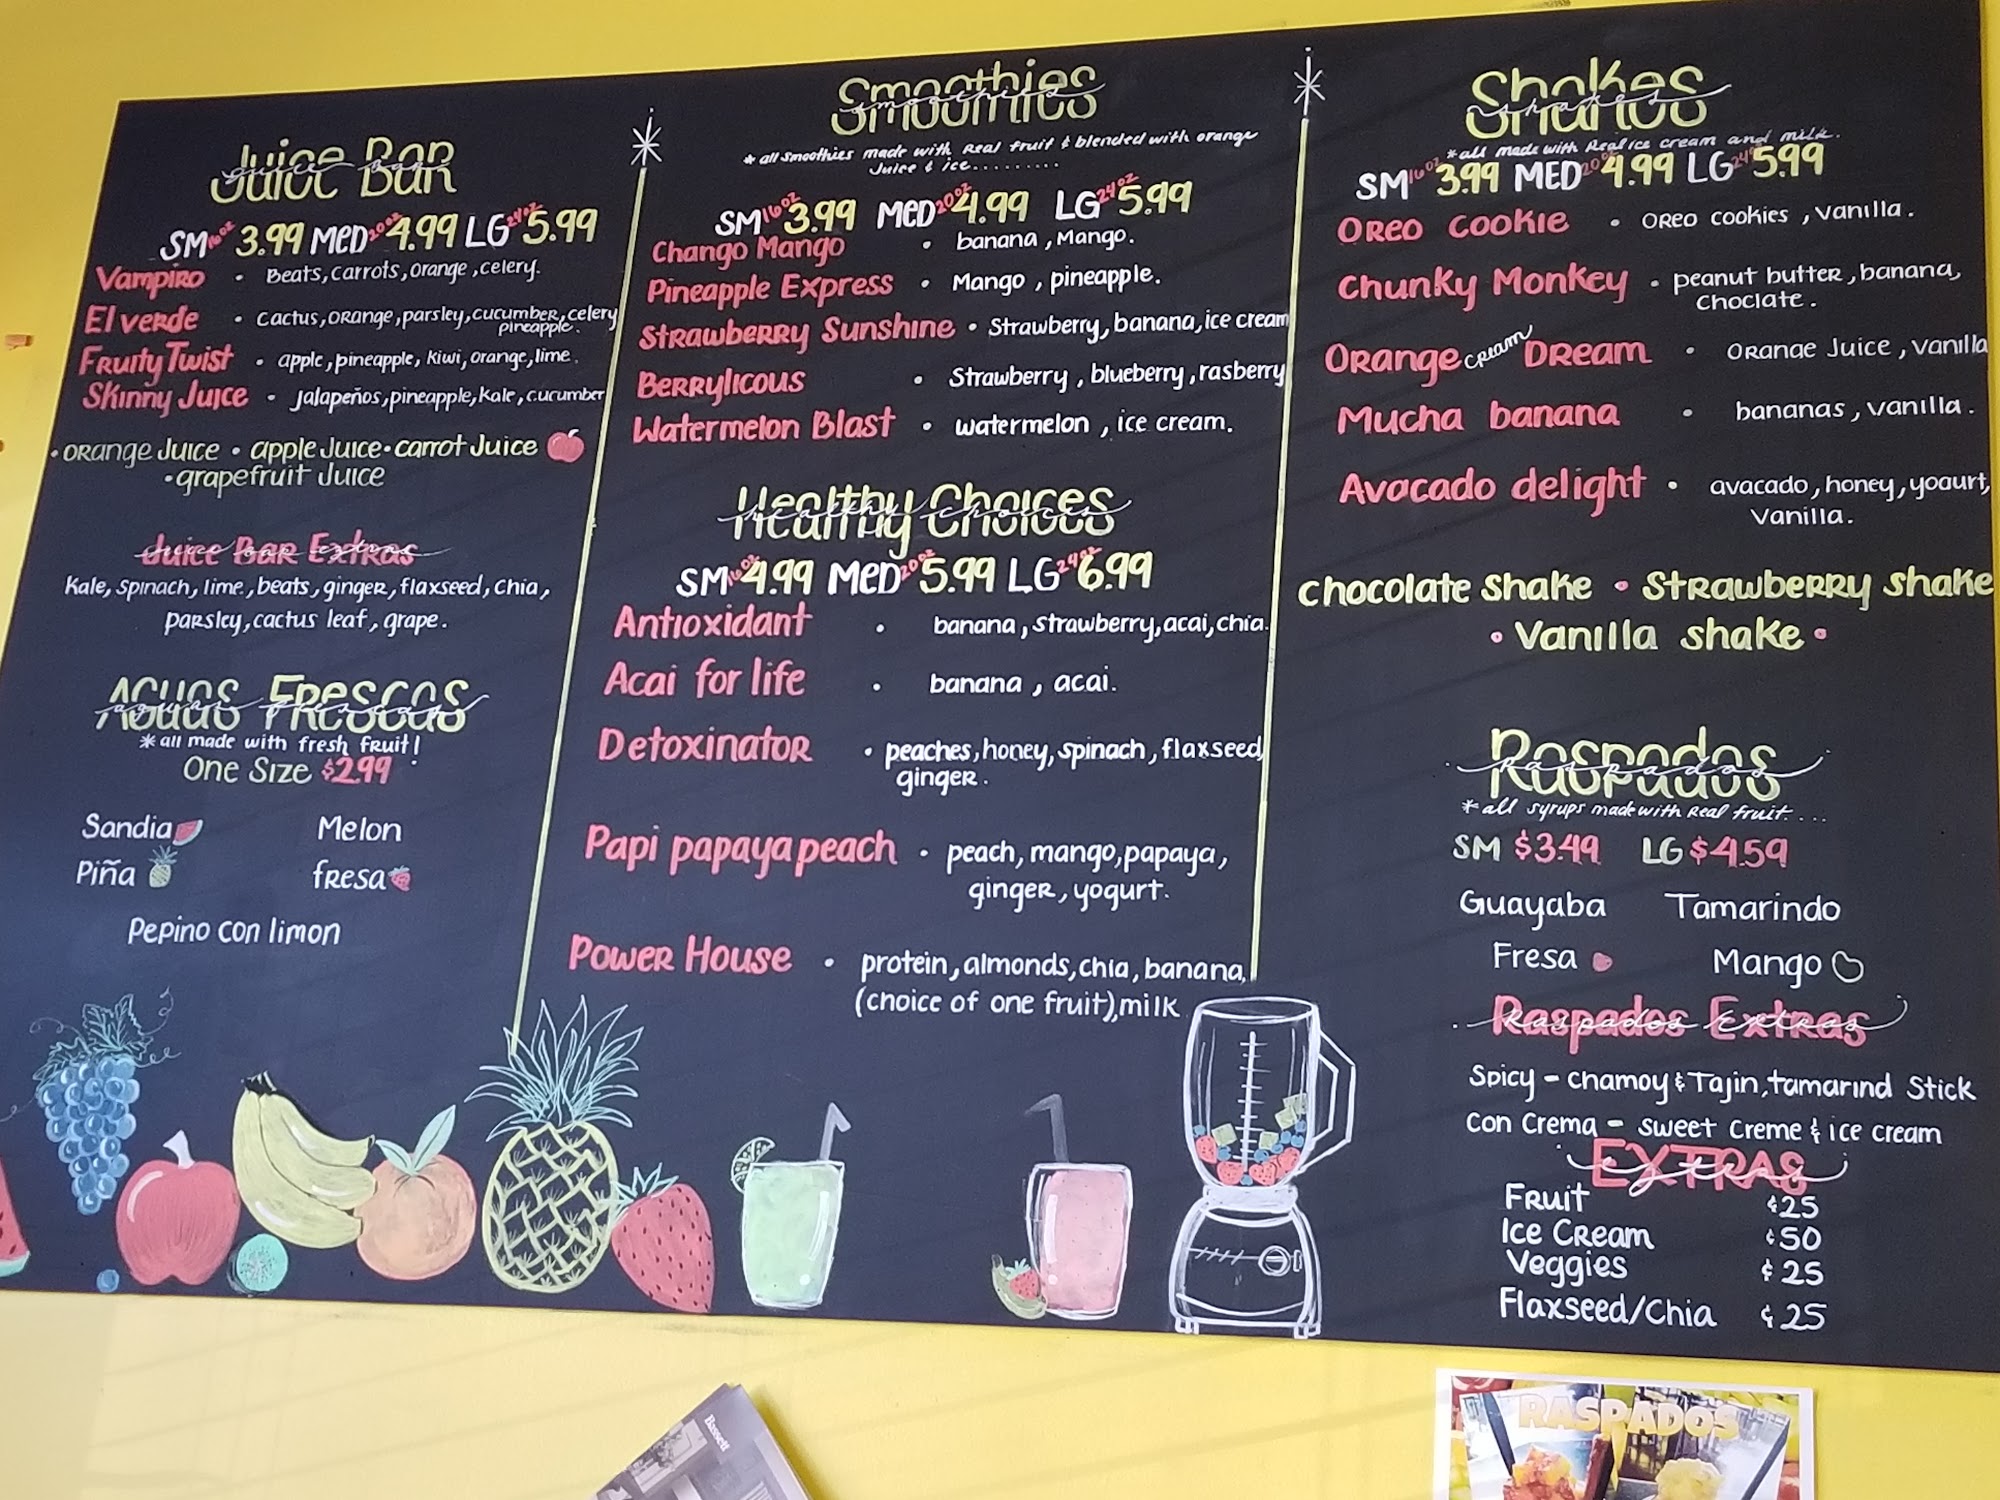 Juice Bar
juice bar
SM 16oz 3.99 MED 20oz 4.99 LG 24oz 5.99
Vampiro • Beats, carrots, orange, celery.
El verde • Cactus, orange, parsley, cucumber, celery
pineapple.
Fruity Twist • apple, pineapple, kiwi, orange, lime.
Skinny Juice • Jalapeños, pineapple, kale, cucumber
• Orange Juice • apple Juice • carrot Juice
• grapefruit Juice
Juice Bar Extras
juice bar extras
Kale, spinach, lime, beats, ginger, flaxseed, chia,
parsley, cactus leaf, grape.
Aguas Frescas
aguas frescas
*all made with fresh fruit!
One Size $2.99
Sandia Melon
Piña fresa
Pepino con limon
Smoothies
smoothies
*all smoothies made with real fruit & blended with orange
Juice & ice..........
SM 16oz 3.99 MED 20oz 4.99 LG 24oz 5.99
Chango Mango • banana, Mango.
Pineapple Express • Mango, pineapple.
Strawberry Sunshine • Strawberry, banana, ice cream
Berrylicous • Strawberry, blueberry, rasberry
Watermelon Blast • watermelon, ice cream.
Healthy Choices
healthy choices
SM 16oz 4.99 MED 20oz 5.99 LG 24oz 6.99
Antioxidant • banana, strawberry, acai, chia.
Acai for life • banana, acai.
Detoxinator • peaches, honey, spinach, flaxseed,
ginger.
Papi papaya peach • peach, mango, papaya,
ginger, yogurt.
Power House • protein, almonds, chia, banana,
(choice of one fruit), milk
Shakes
shakes
*all made with Real ice cream and milk.
SM 16oz 3.99 MED 20oz 4.99 LG 24oz 5.99
Oreo Cookie • Oreo cookies, Vanilla.
Chunky Monkey • peanut butter, banana,
Choclate.
Orange cream Dream • Orange Juice, Vanilla
Mucha banana • bananas, vanilla.
Avocado delight • avacado, honey, yogurt,
Vanilla.
Chocolate Shake • Strawberry shake
• Vanilla shake •
Raspados
raspados
*all syrups made with real fruit....
SM $3.49 LG $4.59
Guayaba Tamarindo
Fresa Mango
Raspados Extras
raspados extras
Spicy - chamoy & Tajin, tamarind Stick
Con Crema - sweet creme & ice cream
EXTRAS
extras
Fruit ¢25
Ice Cream ¢50
Veggies ¢25
Flaxseed/Chia ¢25
Bassett
RASPADOS